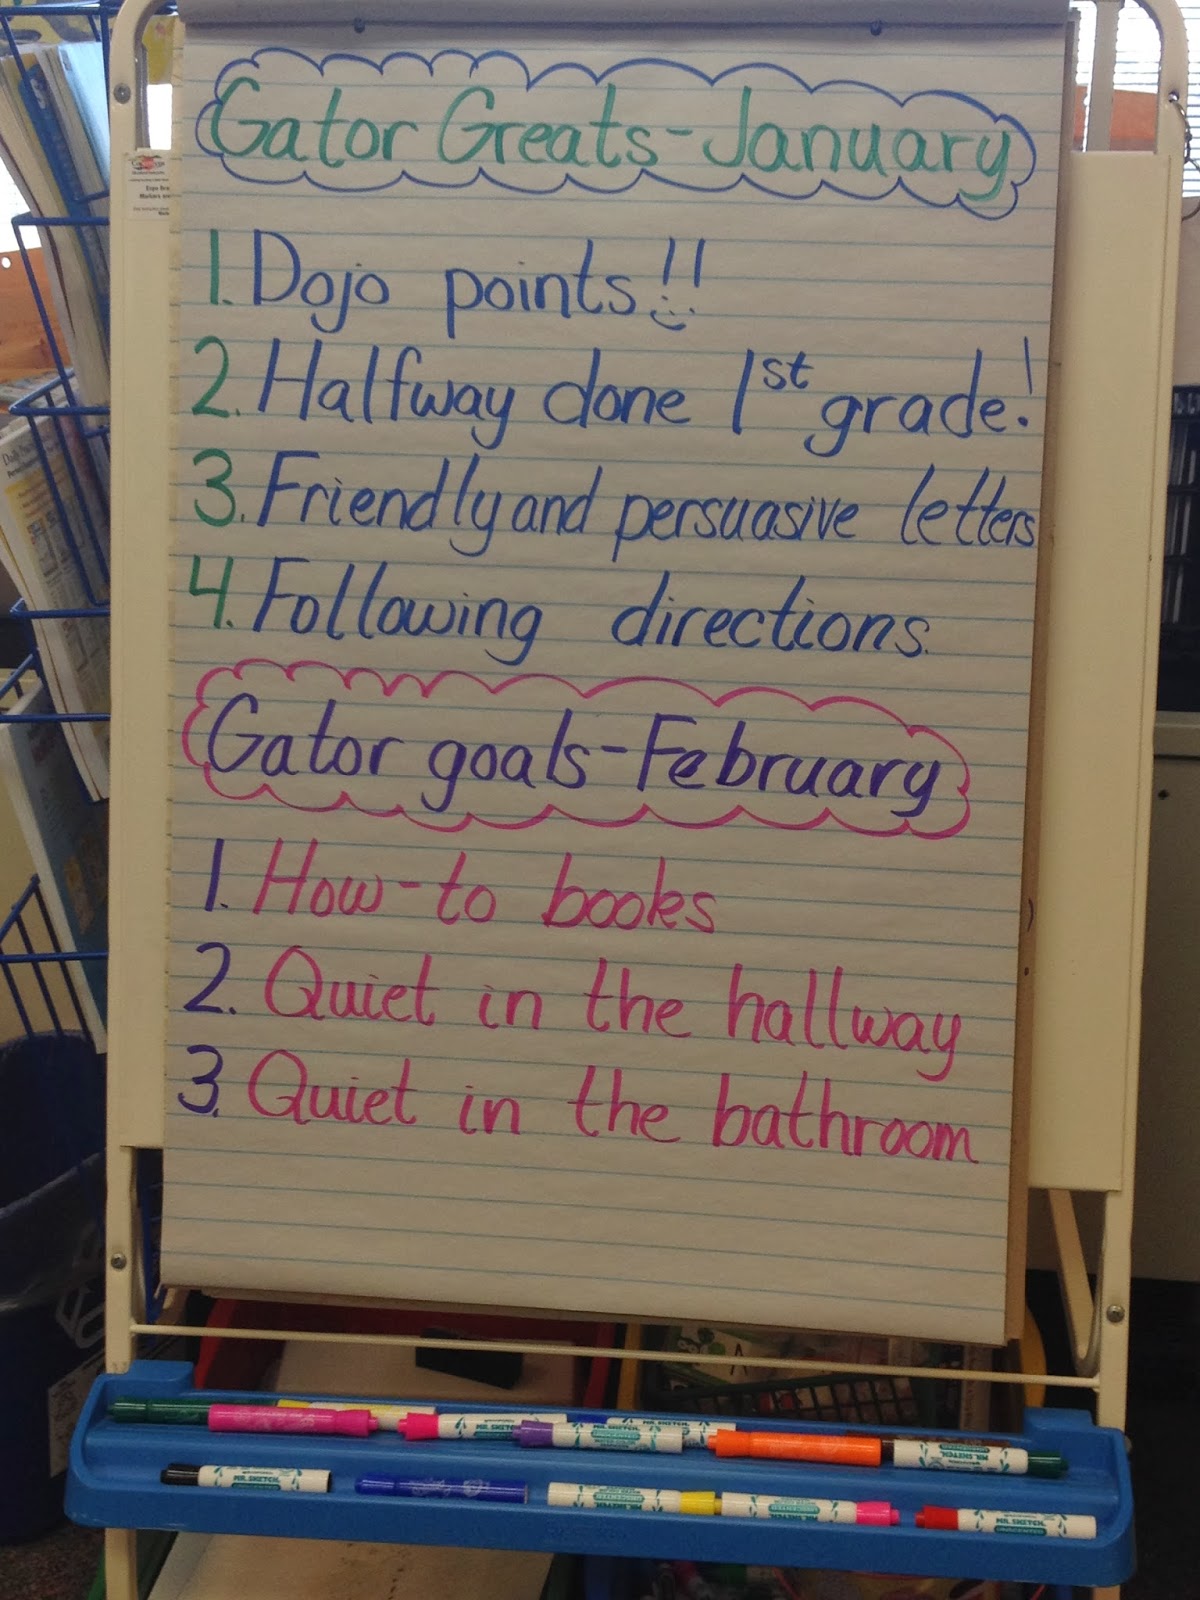 Gator Greats-January
1. Dojo points!!
2. Halfway done 1st grade!
3. Friendly and persuasive letters
4. Following directions.
Gator goals-February
1. How-to books
2. Quiet in the hallway
3. Quiet in the bathroom
MR. SKETCH
MR. SKETCH
MR. SKETCH
MR. SKETCH
MR. SKETCH